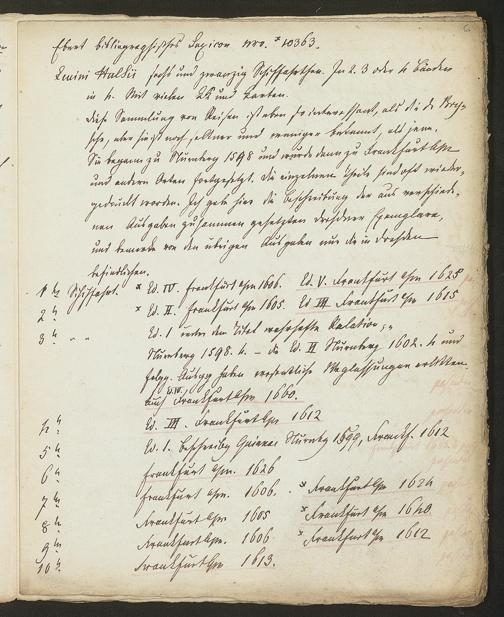 6.
Ebert bibliographisches Lexicon nro. * 10363.
Levini Hulsii sechs und zwanzig Schiffahrthen. In 2. 3 oder 4 Bänden
in 4. Mit vielen Kk und Karten.
diese Sammlung von Reisen ist eben so interessant, als die de Bry-
sche, aber sie ist noch seltner und weniger bekannt, als jene.
Sie begann zu Nürnberg 1598 und wurde dann zu Frankfurt a/m
und andern Orten fortgesetzt. die einzelnen Theile sind oft wieder-
gedruckt worden. Ich gebe hier die Beschreibung der aus verschiede-
nen Ausgaben zusammen gesetzten dresdener Exemplare,
und bemerke von den übrigen Ausgaben nur die in dresden
befindlichen.
1 te Schiffahrt. * Ed. IV. Frankfurt a/m 1606. Ed. V. Frankfurt a/m 1625
2 te * Ed. II. Frankfurt a/m 1605. Ed. III. Frankfurt a/m 1615
3 te " " Ed. I unter dem Titel wahrhafte Relation
Nürnberg 1598. 4. – die Ed. II Nürnberg 1602. 4 und
folgg. Ausgg haben wesentliche Weglassungen erlitten.
Ed. IV.
auch Frankfurt a/m 1660.
4 te Ed. III. Frankfurt a/m 1612
5 te Ed. I. Beschreibg Guianae Nürnbg 1599, Frankf. 1612
6 te Frankfurt a/m. 1626
7 te Frankfurt a/m. 1606. * Frankfurt a/m 1624
8 te Frankfurt a/m 1605 * Frankfurt a/m 1640
9 te Frankfurt a/m. 1606 * Frankfurt a/m 1612
10 te Frankfurt a/m 1613.